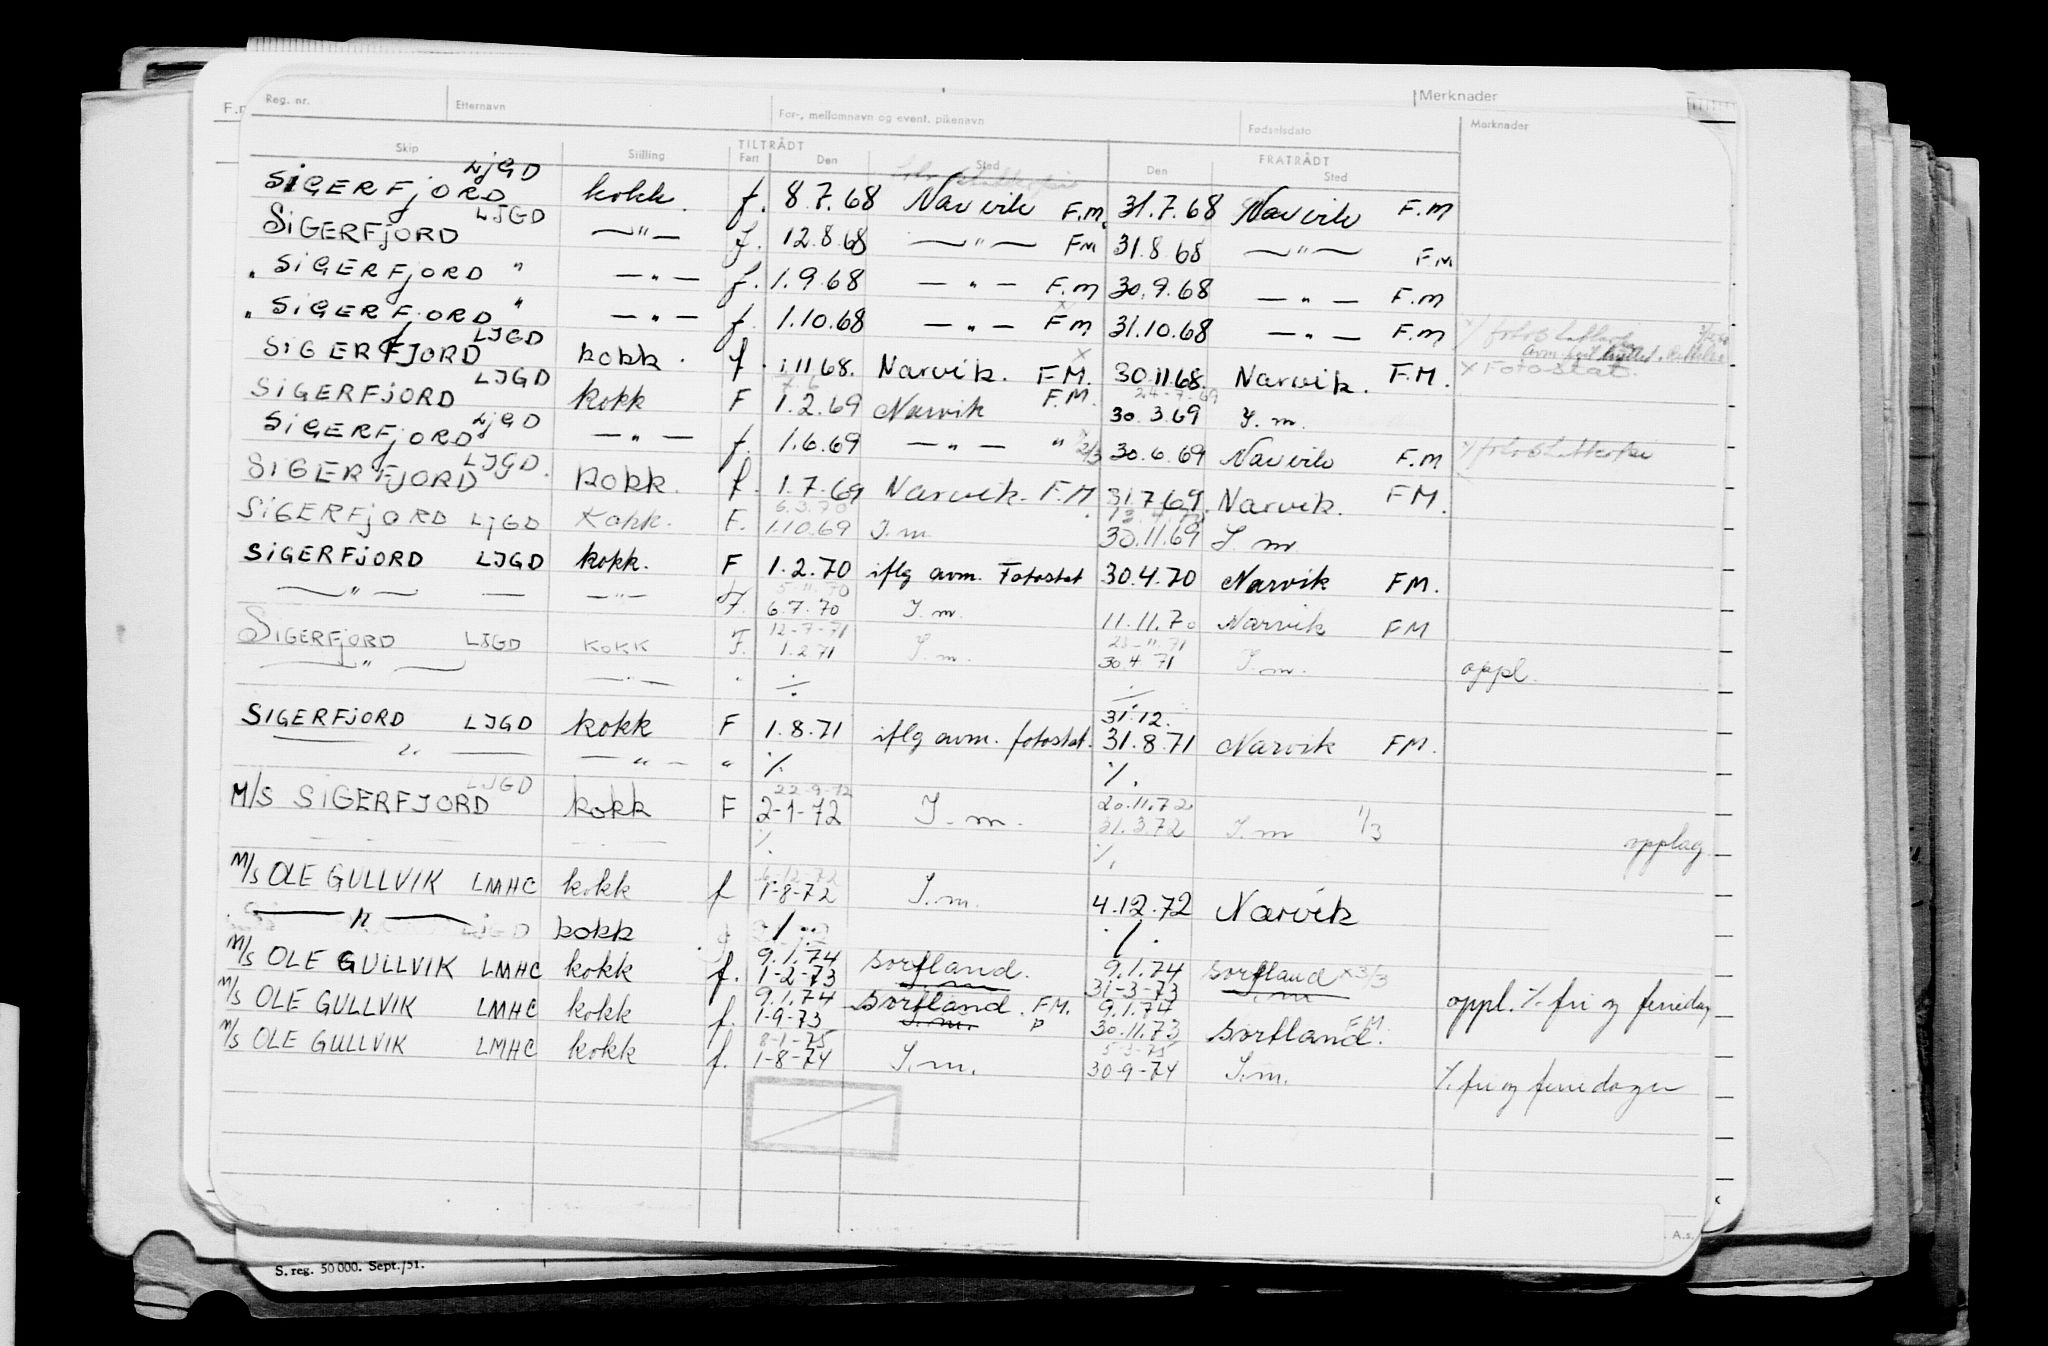 F.n
Merknader
Reg. nr. Etternavn For-, mellomnavn og event. pikenavn Fødselsdato Merknader
TILTRÅDT FRATRÅDT
Skip Stilling Fart Den Sted Den Sted
SIGERFJORD LJGD kokk. f. 8.7.68 Narvik F.M. 31.7.68 Narvik F.M
SIGERFJORD LJGD —"— f. 12.8.68 —"— FM 31.8.68 —"— FM
" SIGERFJORD " —"— f. 1.9.68 —"— F.M 30.9.68 —"— F.M
" SIGERFJORD " —"— f. 1.10.68 —"— x FM 31.10.68 —"— F.M
SIGERFJORD LJGD kokk. f. 1.11.68. Narvik. x F.M. 30.11.68. Narvik. F.M. x Fotostat.
7.6 24-7-69
SIGERFJORD LJGD kokk F 1.2.69 Narvik F.M. 30.3.69 I.m.
SIGERFJORD LJGD —"— f. 1.6.69 —"— " 2/3 30.6.69 Narvik F.M
SIGERFJORD LJGD. kokk. f. 1.7.69 Narvik. F.M 31.7.69. Narvik. FM.
6.3.70
SIGERFJORD LJGD Kokk. F. 1.10.69 I.m. 30.11.69 I.m
SIGERFJORD LJGD kokk. F 1.2.70 iflg avm. Fotostat 30.4.70 Narvik FM.
5.11.70
—"— — —"— F. 6.7.70 I.m. 11.11.70 Narvik FM
12-7-71 23-11.71
SIGERFJORD LJGD KOKK F. 1.2.71 I.m. 30.4.71 I.m. oppl.
—"— —"— " ÷ ÷
31.12.
SIGERFJORD LJGD kokk F 1.8.71 iflg avm. fotostat. 31.8.71 Narvik FM.
—"— —"— " ÷ ÷
22-9-72 20.11.72
M/S SIGERFJORD LJGD kokk F 2-1-72 I.m. 31.3.72 I.m 1/3 opplag
÷ ÷
6-12-72
M/S OLE GULLVIK LMHC kokk f 1-8-72 I.m. 4.12.72 Narvik
—"— kokk ÷ ÷
9.1.74 9.1.74
M/S OLE GULLVIK LMHC kokk f. 1-2-73 Sortland. I.m. 31-3-73 Sortland x3/3 I.m
9.1.74 9.1.74
M/S OLE GULLVIK LMHC kokk f. 1-9-73 Sortland. FM. I.m. 30.11.73 Sortland. F.M. oppl. ÷ fri og feriedag
8-1-75 5-3-75
M/S OLE GULLVIK LMHC kokk f. 1-8-74 I.m. 30-9-74 I.m. ÷ fri og feriedager
A.s.
S. reg. 50 000. Sept./51.